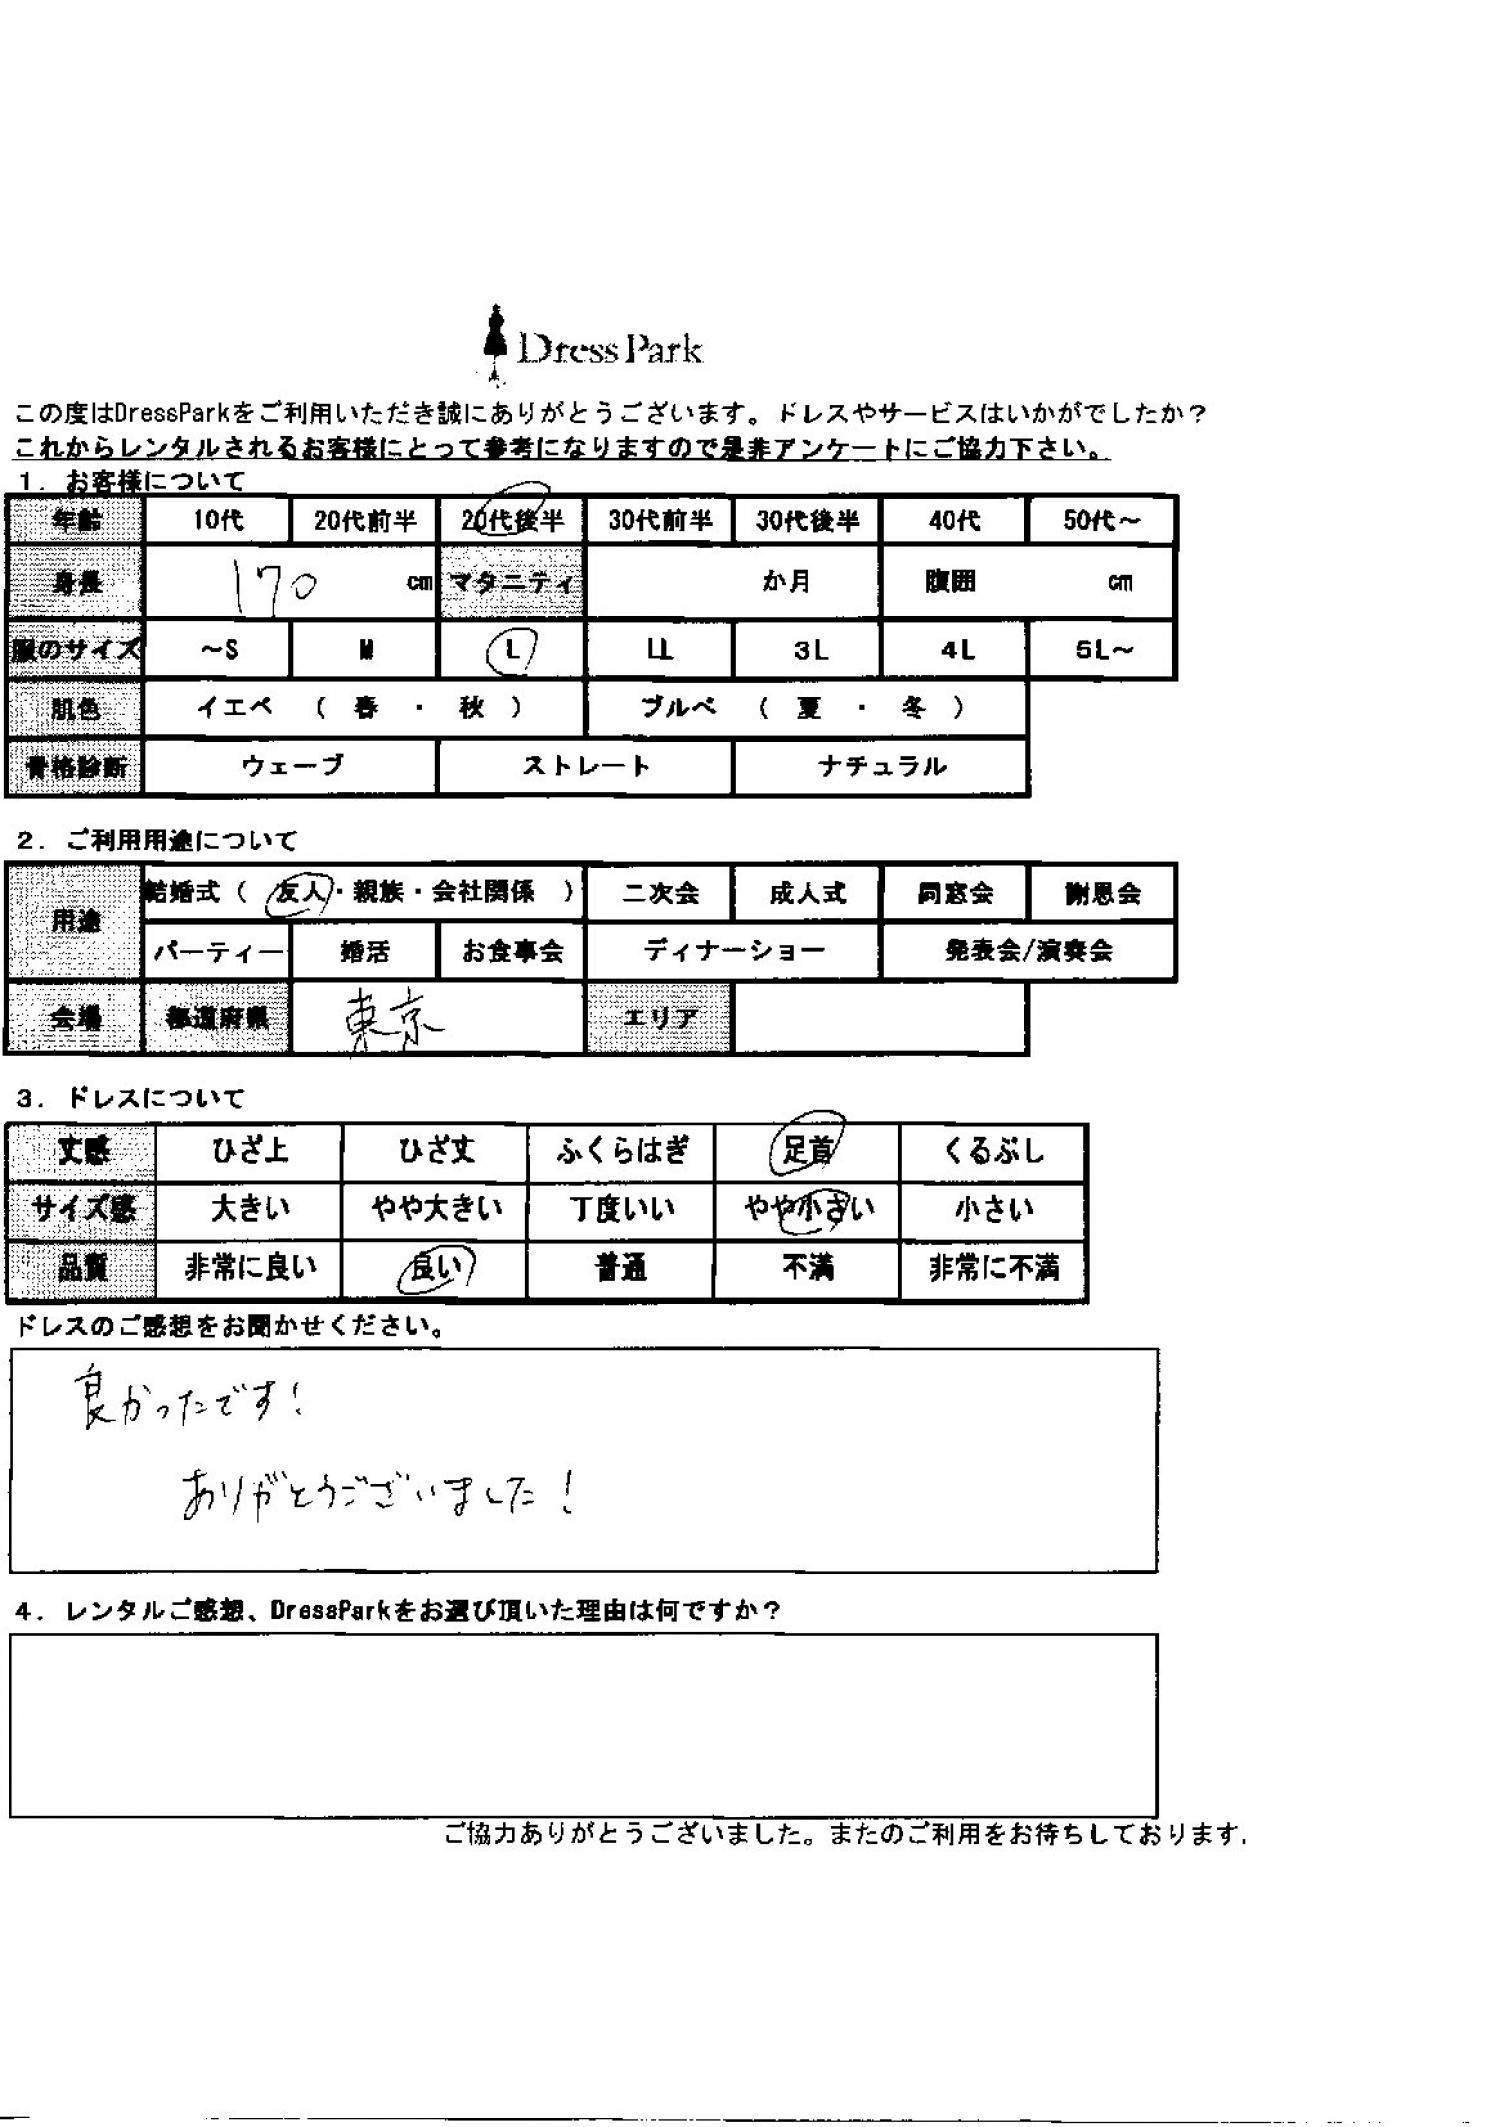 Dress Park
この度はDressParkをご利用いただき誠にありがとうございます。ドレスやサービスはいかがでしたか？
これからレンタルされるお客様にとって参考になりますので是非アンケートにご協力下さい。
1．お客様について
年齢 10代 20代前半 20代後半 30代前半 30代後半 40代 50代～
身長 170 cm マタニティ か月 腹囲 cm
服のサイズ ～S M L LL 3L 4L 5L～
肌色 イエベ （ 春 ・ 秋 ） ブルベ （ 夏 ・ 冬 ）
骨格診断 ウェーブ ストレート ナチュラル
2．ご利用用途について
用途 結婚式（ 友人・親族・会社関係 ） 二次会 成人式 同窓会 謝恩会
パーティー 婚活 お食事会 ディナーショー 発表会/演奏会
会場 都道府県 東京 エリア
3．ドレスについて
丈感 ひざ上 ひざ丈 ふくらはぎ 足首 くるぶし
サイズ感 大きい やや大きい 丁度いい やや小さい 小さい
品質 非常に良い 良い 普通 不満 非常に不満
ドレスのご感想をお聞かせください。
良かったです！
ありがとうございました！
4．レンタルご感想、DressParkをお選び頂いた理由は何ですか？
ご協力ありがとうございました。またのご利用をお待ちしております．